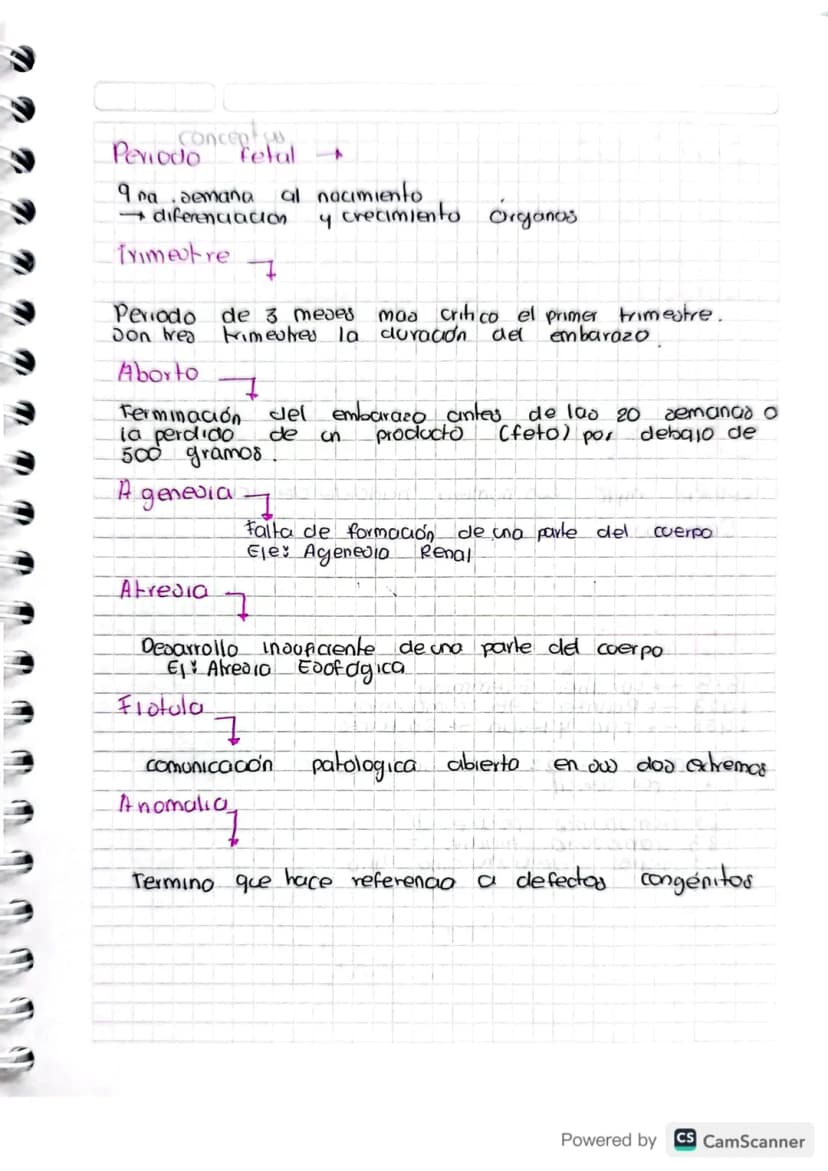 conceptos
Periodo fetal →
9 na semana al nacimiento
→ diferenciación y crecimiento Órganos
Trimestre
Periodo de 3 meses mas critico el primer trimestre.
Son tres trimestres la duración del embarazo.
Aborto
Terminación del embarazo antes de las 20 semanas o
la perdida de un producto (feto) por debajo de
500 gramos.
Agenesia
Falta de formación de una parte del cuerpo
Eje: Agenesia Renal
Atresia
Desarrollo insuficiente de una parte del cuerpo
Ej: Atresia Esofágica
Fistula
comunicación patologica abierta en sus dos extremos
Anomalia
Termino que hace referencia a defectos congénitos
Powered by CS CamScanner